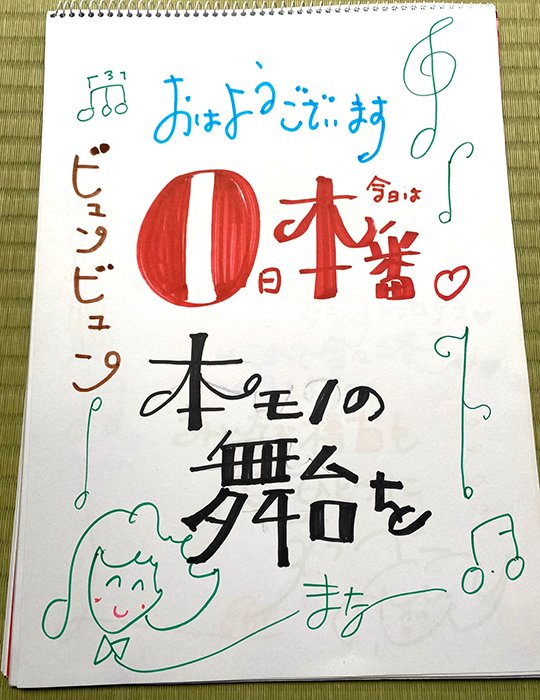 おはようございます
ビュンビュン
0日
今日は
本番♡
本モノの
舞台を
まな